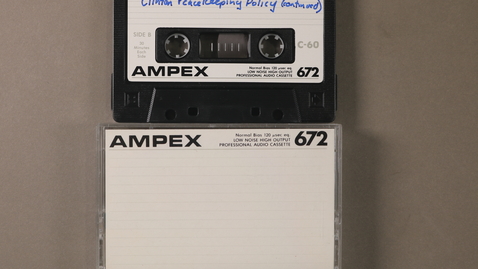 Clinton Peacekeeping Policy (continued)
SIDE B
30
Minutes
Each
Side
C-60
AMPEX
Normal Bias 120 µsec eq.
LOW NOISE HIGH OUTPUT
PROFESSIONAL AUDIO CASSETTE
672
AMPEX
Normal Bias 120 µsec eq.
LOW NOISE HIGH OUTPUT
PROFESSIONAL AUDIO CASSETTE
672